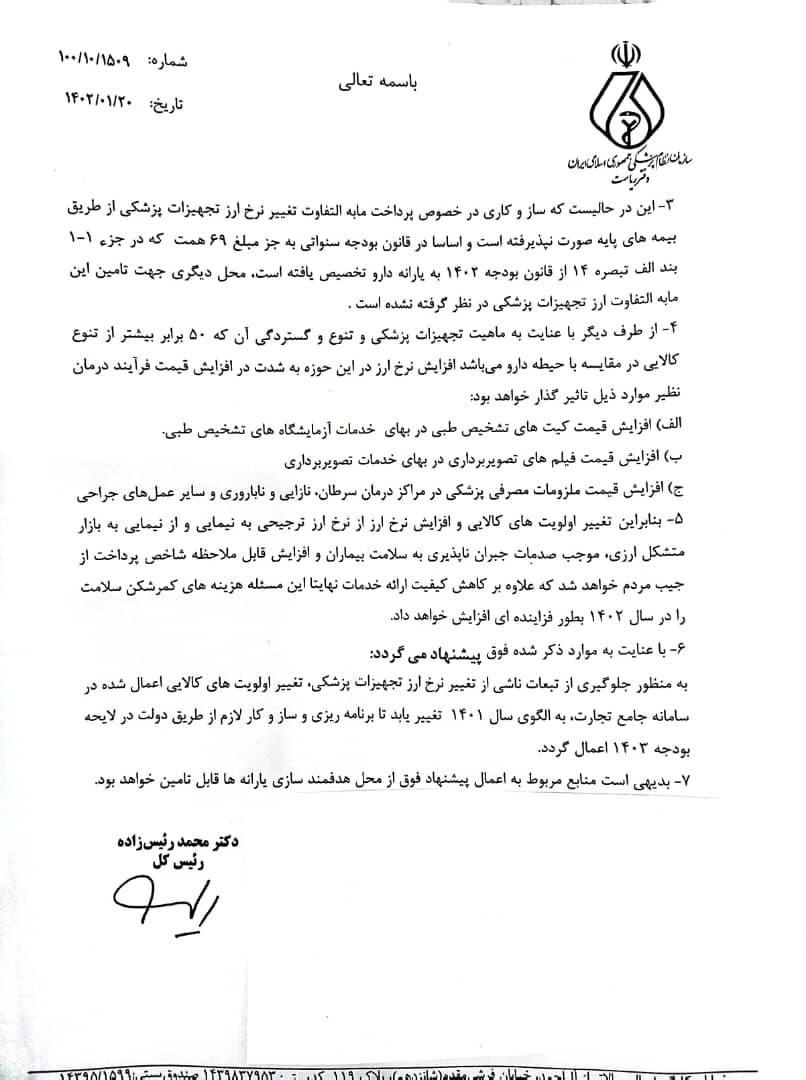 شماره: ۱۰۰/۱۰/۱۵۰۹
باسمه تعالی
تاریخ: ۱۴۰۲/۰۱/۲۰
سازمان نظام پزشکی جمهوری اسلامی ایران
دفتر ریاست
۳- این در حالیست که ساز و کاری در خصوص پرداخت مابه التفاوت تغییر نرخ ارز تجهیزات پزشکی از طریق
بیمه های پایه صورت نپذیرفته است و اساسا در قانون بودجه سنواتی به جز مبلغ ۶۹ همت که در جزء ۱-۱
بند الف تبصره ۱۴ از قانون بودجه ۱۴۰۲ به یارانه دارو تخصیص یافته است، محل دیگری جهت تامین این
مابه التفاوت ارز تجهیزات پزشکی در نظر گرفته نشده است .
۴- از طرف دیگر با عنایت به ماهیت تجهیزات پزشکی و تنوع و گستردگی آن که ۵۰ برابر بیشتر از تنوع
کالایی در مقایسه با حیطه دارو می‌باشد افزایش نرخ ارز در این حوزه به شدت در افزایش قیمت فرآیند درمان
نظیر موارد ذیل تاثیر گذار خواهد بود:
الف) افزایش قیمت کیت های تشخیص طبی در بهای خدمات آزمایشگاه های تشخیص طبی.
ب) افزایش قیمت فیلم های تصویربرداری در بهای خدمات تصویربرداری
ج) افزایش قیمت ملزومات مصرفی پزشکی در مراکز درمان سرطان، نازایی و ناباروری و سایر عمل‌های جراحی
۵- بنابراین تغییر اولویت های کالایی و افزایش نرخ ارز از نرخ ارز ترجیحی به نیمایی و از نیمایی به بازار
متشکل ارزی، موجب صدمات جبران ناپذیری به سلامت بیماران و افزایش قابل ملاحظه شاخص پرداخت از
جیب مردم خواهد شد که علاوه بر کاهش کیفیت ارائه خدمات نهایتا این مسئله هزینه های کمرشکن سلامت
را در سال ۱۴۰۲ بطور فزاینده ای افزایش خواهد داد.
۶- با عنایت به موارد ذکر شده فوق پیشنهاد می گردد:
به منظور جلوگیری از تبعات ناشی از تغییر نرخ ارز تجهیزات پزشکی، تغییر اولویت های کالایی اعمال شده در
سامانه جامع تجارت، به الگوی سال ۱۴۰۱ تغییر یابد تا برنامه ریزی و ساز و کار لازم از طریق دولت در لایحه
بودجه ۱۴۰۳ اعمال گردد.
۷- بدیهی است منابع مربوط به اعمال پیشنهاد فوق از محل هدفمند سازی یارانه ها قابل تامین خواهد بود.
دکتر محمد رئیس‌زاده
رئیس کل
خیابان فرشی مقدم (شانزدهم) پلاک ۱۱۹ کد پستی: ۱۴۳۹۸۳۷۹۵۳ صندوق پستی: ۱۴۳۹۵/۱۵۹۹